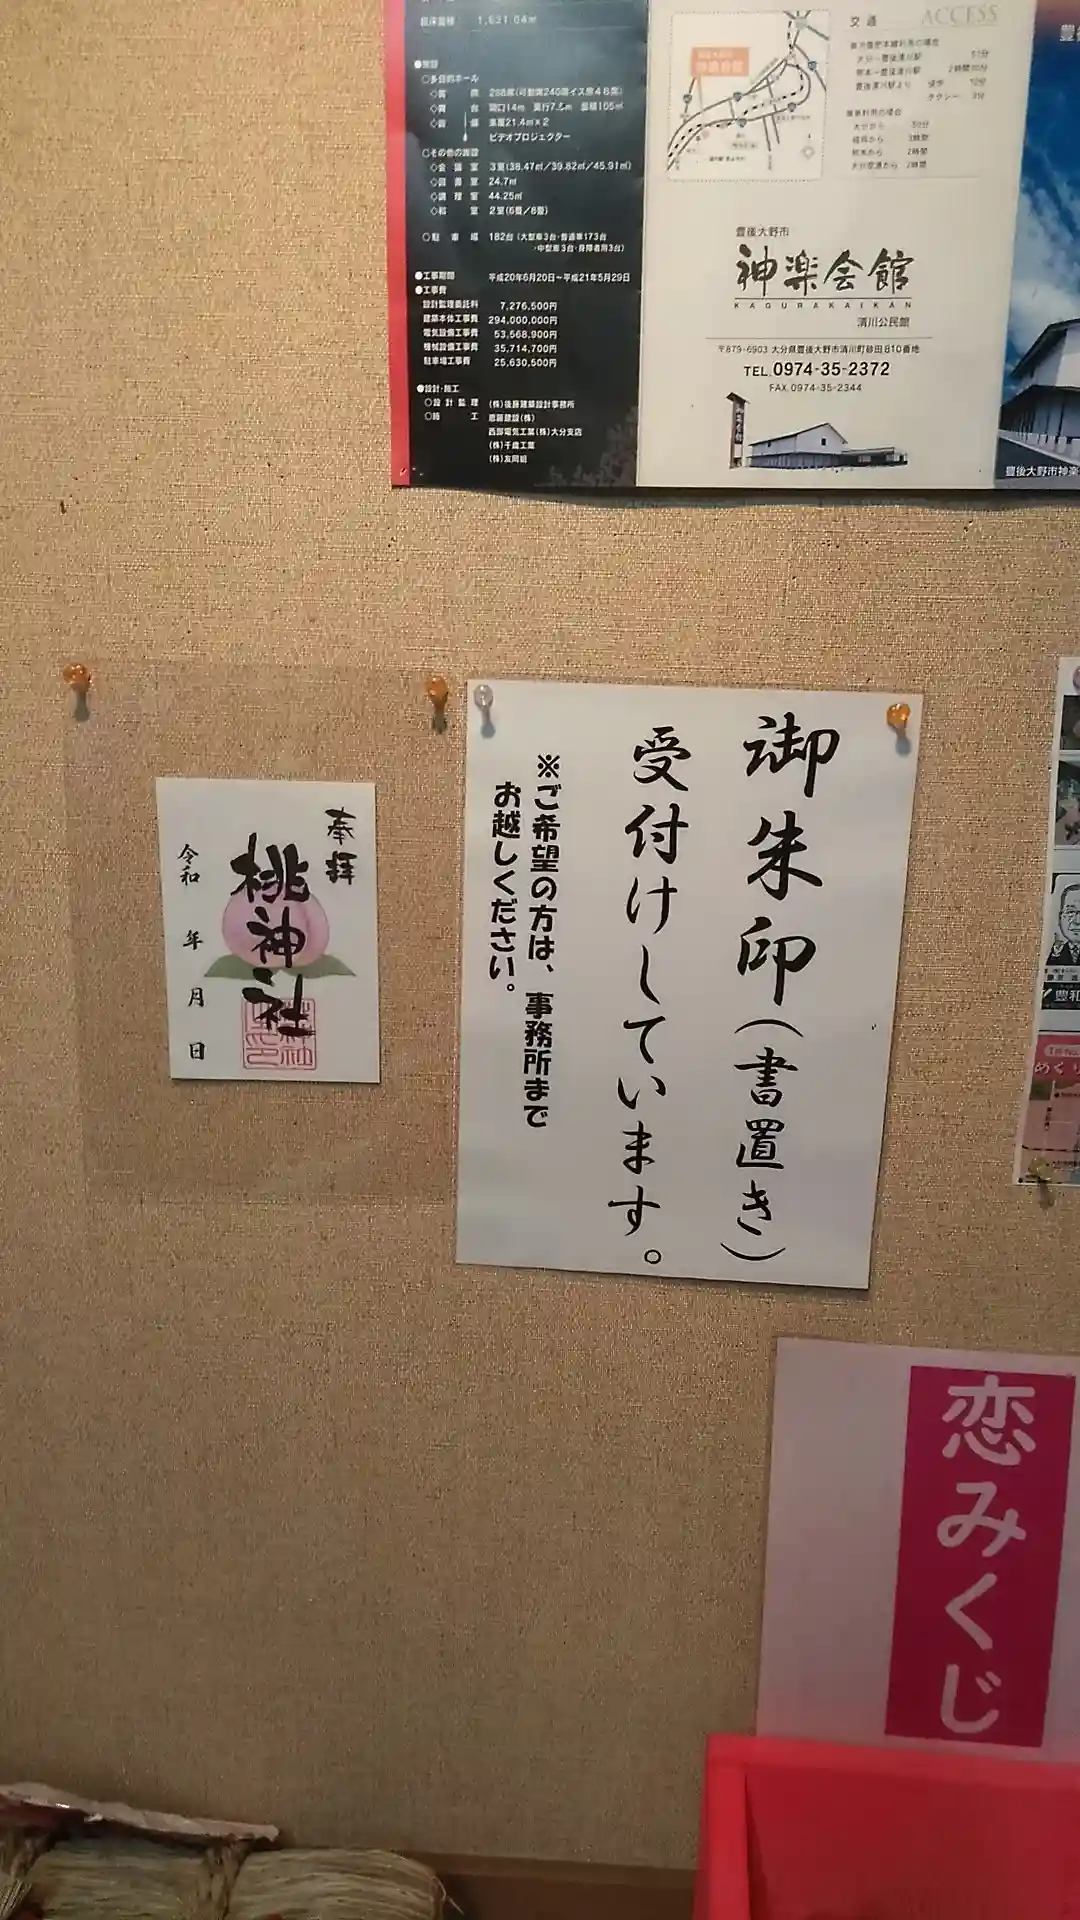 1,631.04㎡
●施設
○多目的ホール
◇客席 288席(可動席240席イス席48席)
◇舞台 間口14m 奥行7.5m 面積105㎡
ビデオプロジェクター
○その他の施設
◇会議室 3室(38.47㎡/39.82㎡/45.91㎡)
◇図書室 24.7㎡
◇調理室 44.25㎡
◇和室 2室(6畳/8畳)
○駐車場 182台(大型車3台・普通車173台
・中型車3台・身障者用3台)
●工事期間 平成20年6月20日~平成21年5月29日
●工事費
設計監理委託料 7,276,500円
建築本体工事費 294,000,000円
電気設備工事費 53,568,900円
機械設備工事費 35,714,700円
駐車場工事費 25,630,500円
●設計・施工
○設計監理 (株)後藤建築設計事務所
○施工
西部電気工業(株)大分支店
(株)千歳工業
(株)友岡組
交通 ACCESS
大分から
熊本から 2時間
大分空港から 2時間
豊後大野市
神楽会館
KAGURAKAIKAN
清川公民館
〒879-6903 大分県豊後大野市清川町砂田810番地
TEL.0974-35-2372
FAX.0974-35-2344
豊後大野市神楽
御朱印(書置き)
受付けしています。
※ご希望の方は、事務所まで
お越しください。
奉拝
桃神社
令和 年 月 日
恋みくじ